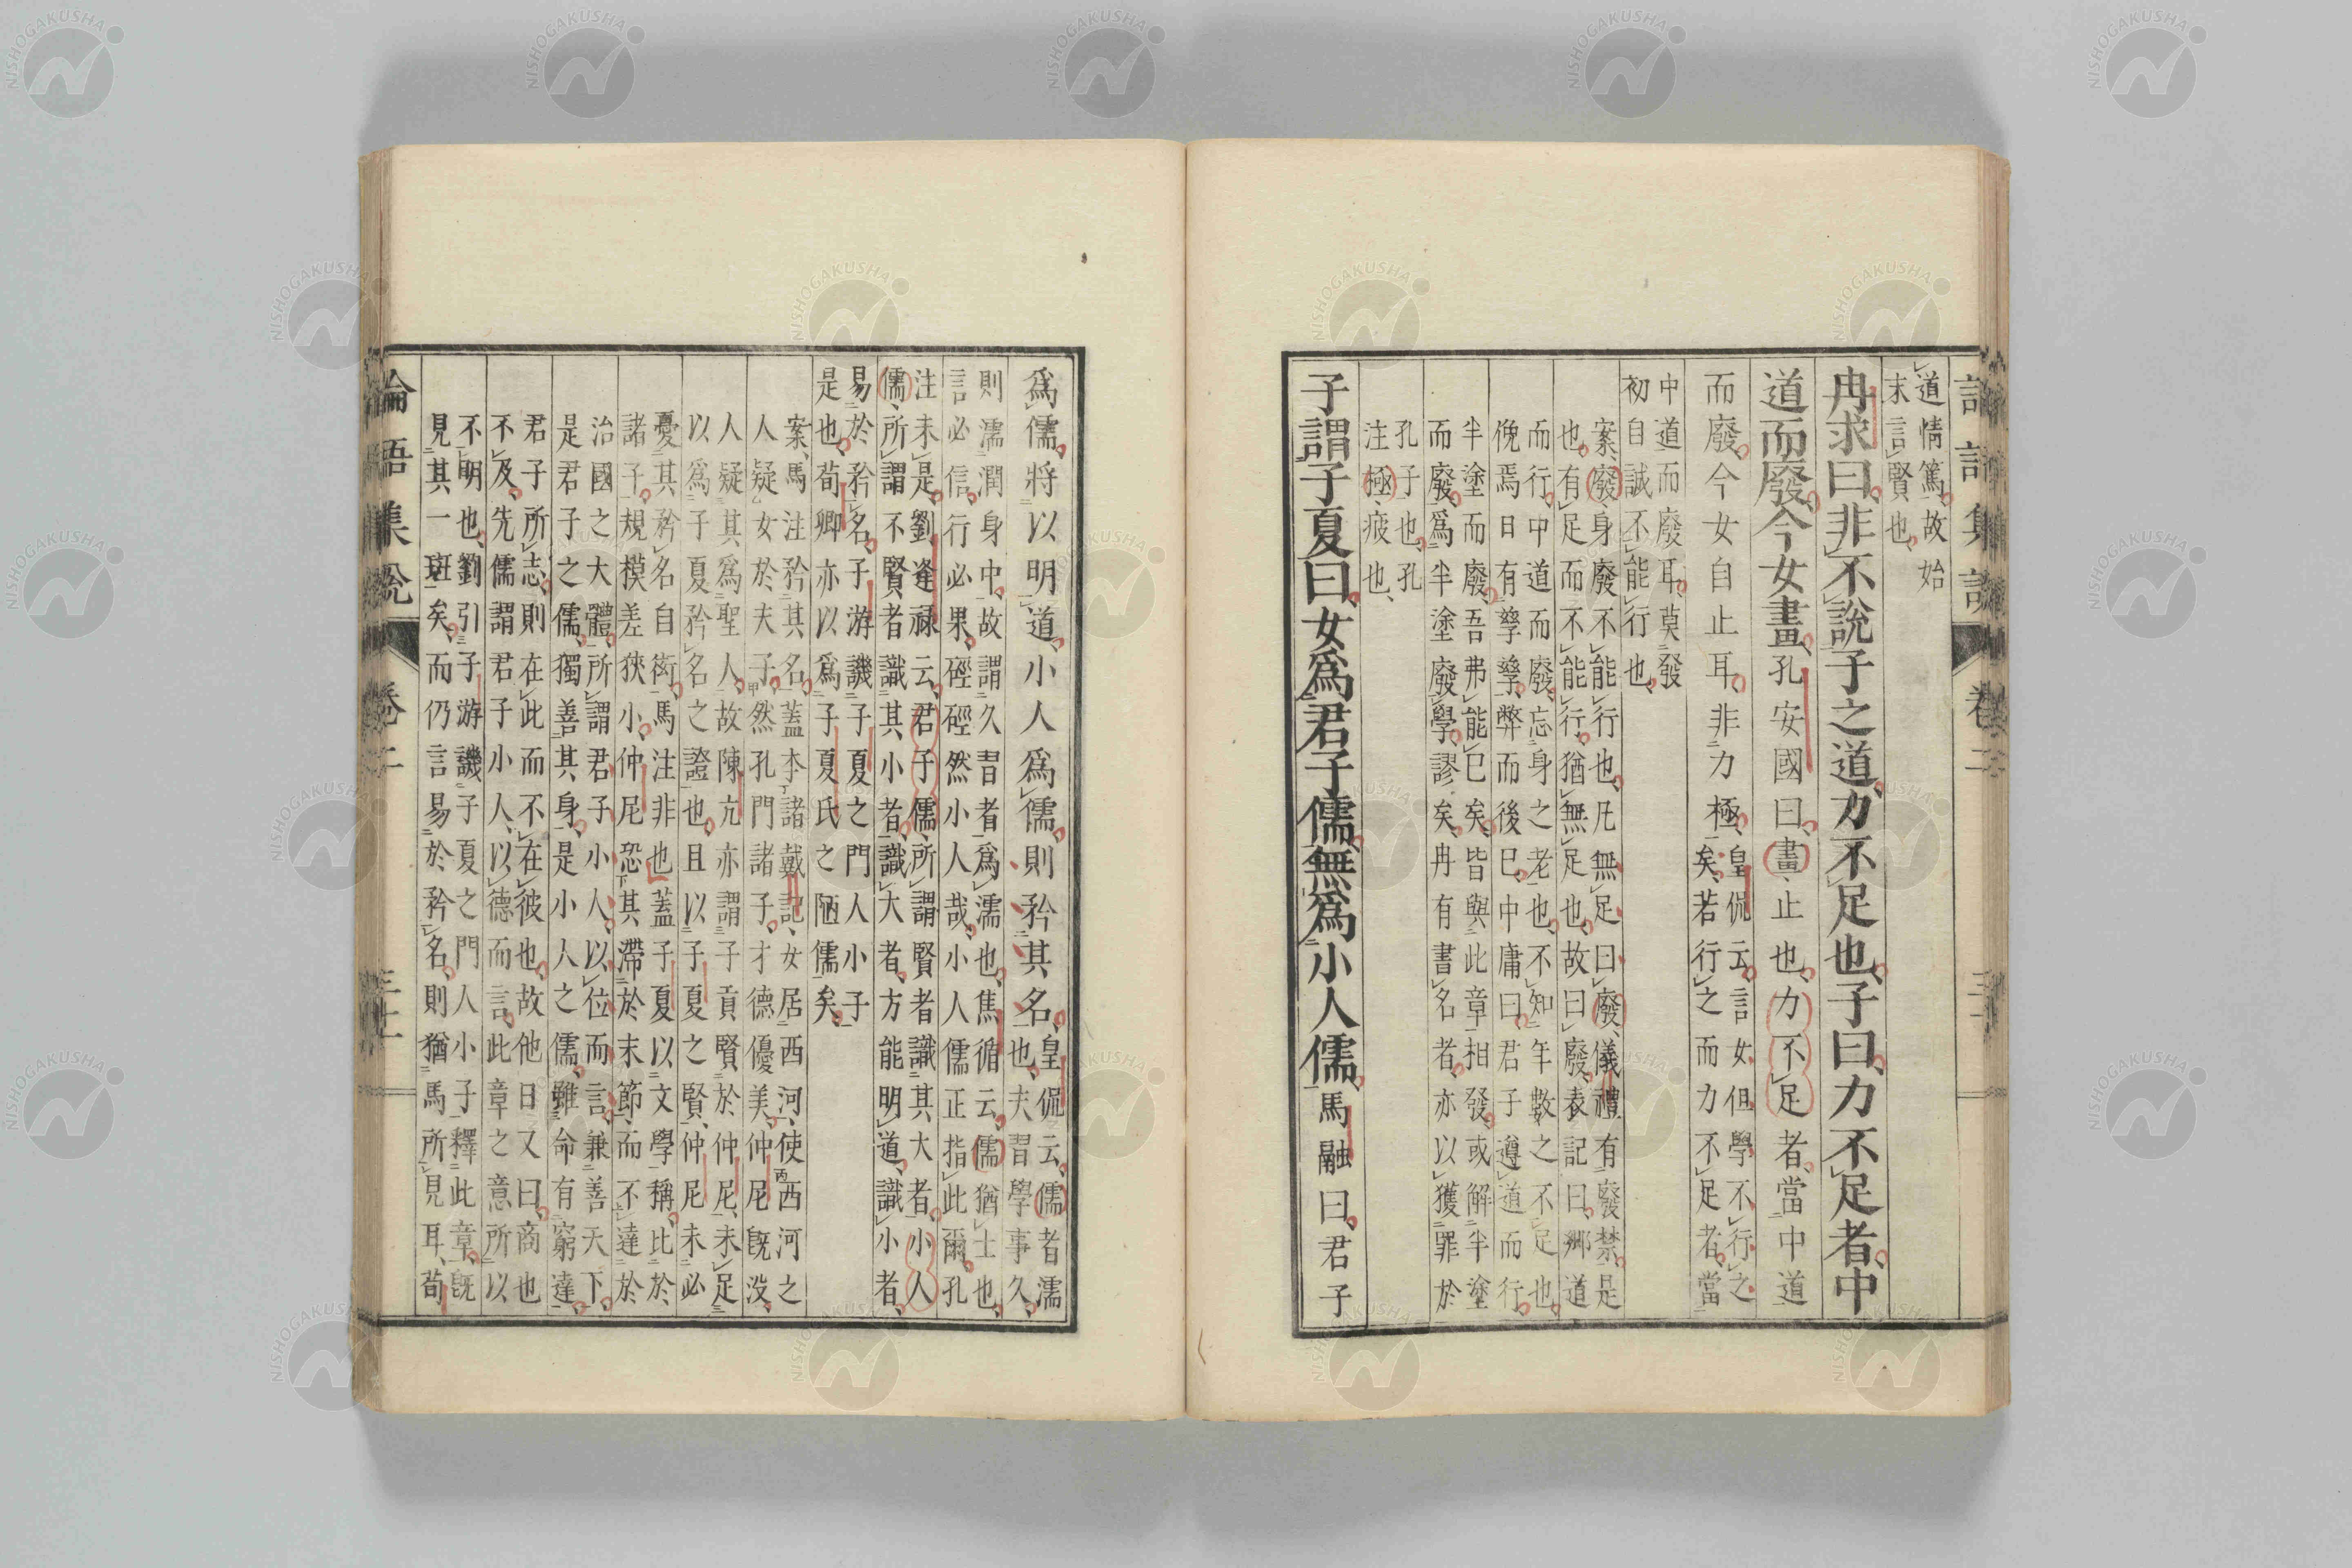 道情篤故始
末言賢也
冉求曰非不說子之道力不足也子曰力不足者中
道而廢今女畫孔安國曰畫止也力不足者當中道
而廢今女自止耳非力極皇侃云言女但學不行之
矣若行之而力不足者當
中道而廢耳莫發
初自誠不能行也
案廢身廢不能行也凡無足曰廢儀禮有廢禁是
也有足而不能行猶無足也故曰廢表記曰鄉道
而行中道而廢忘身之老也不知年數之不足也
俛焉日有孳孳弊而後已中庸曰君子遵道而行
半塗而廢吾弗能已矣皆與此章相發或解半塗
而廢爲半塗廢學謬矣冉有書名者亦以獲罪於
孔子也孔
注極疲也
子謂子夏曰女爲君子儒無爲小人儒馬融曰君子
爲儒將以明道小人爲儒則矜其名皇侃云儒者濡
也夫習學事久
則濡潤身中故謂久習者爲濡也焦循云儒猶士也
言必信行必果硜硜然小人哉小人儒正指此爾孔
注未是劉逢祿云君子儒所謂賢者識其大者小人
儒所謂不賢者識其小者識大者方能明道識小者
易於矜名子游譏子夏之門人小子
是也荀卿亦以爲子夏氏之陋儒矣
案馬注矜其名蓋本諸戴記女居西河使西河之
人疑女於夫子然孔門諸子才德優美仲尼旣沒
人疑其爲聖人故陳亢亦謂子貢賢於仲尼未足
以爲子夏矜名之證也且以子夏之賢仲尼未必
憂其矜名自衒馬注非也蓋子夏以文學稱比於
諸子規模差狹小仲尼恐其滯於末節而不達於
治國之大體所謂君子小人以位而言兼善天下
是君子之儒獨善其身是小人之儒雖命有窮達
君子所志則在此而不在彼也故他日又曰商也
不及先儒謂君子小人以德而言此章之意所以
不明也劉引子游譏子夏之門人小子釋此章旣
見其一斑矣而仍言易於矜名則猶馬所見耳荀
論語集說 卷二